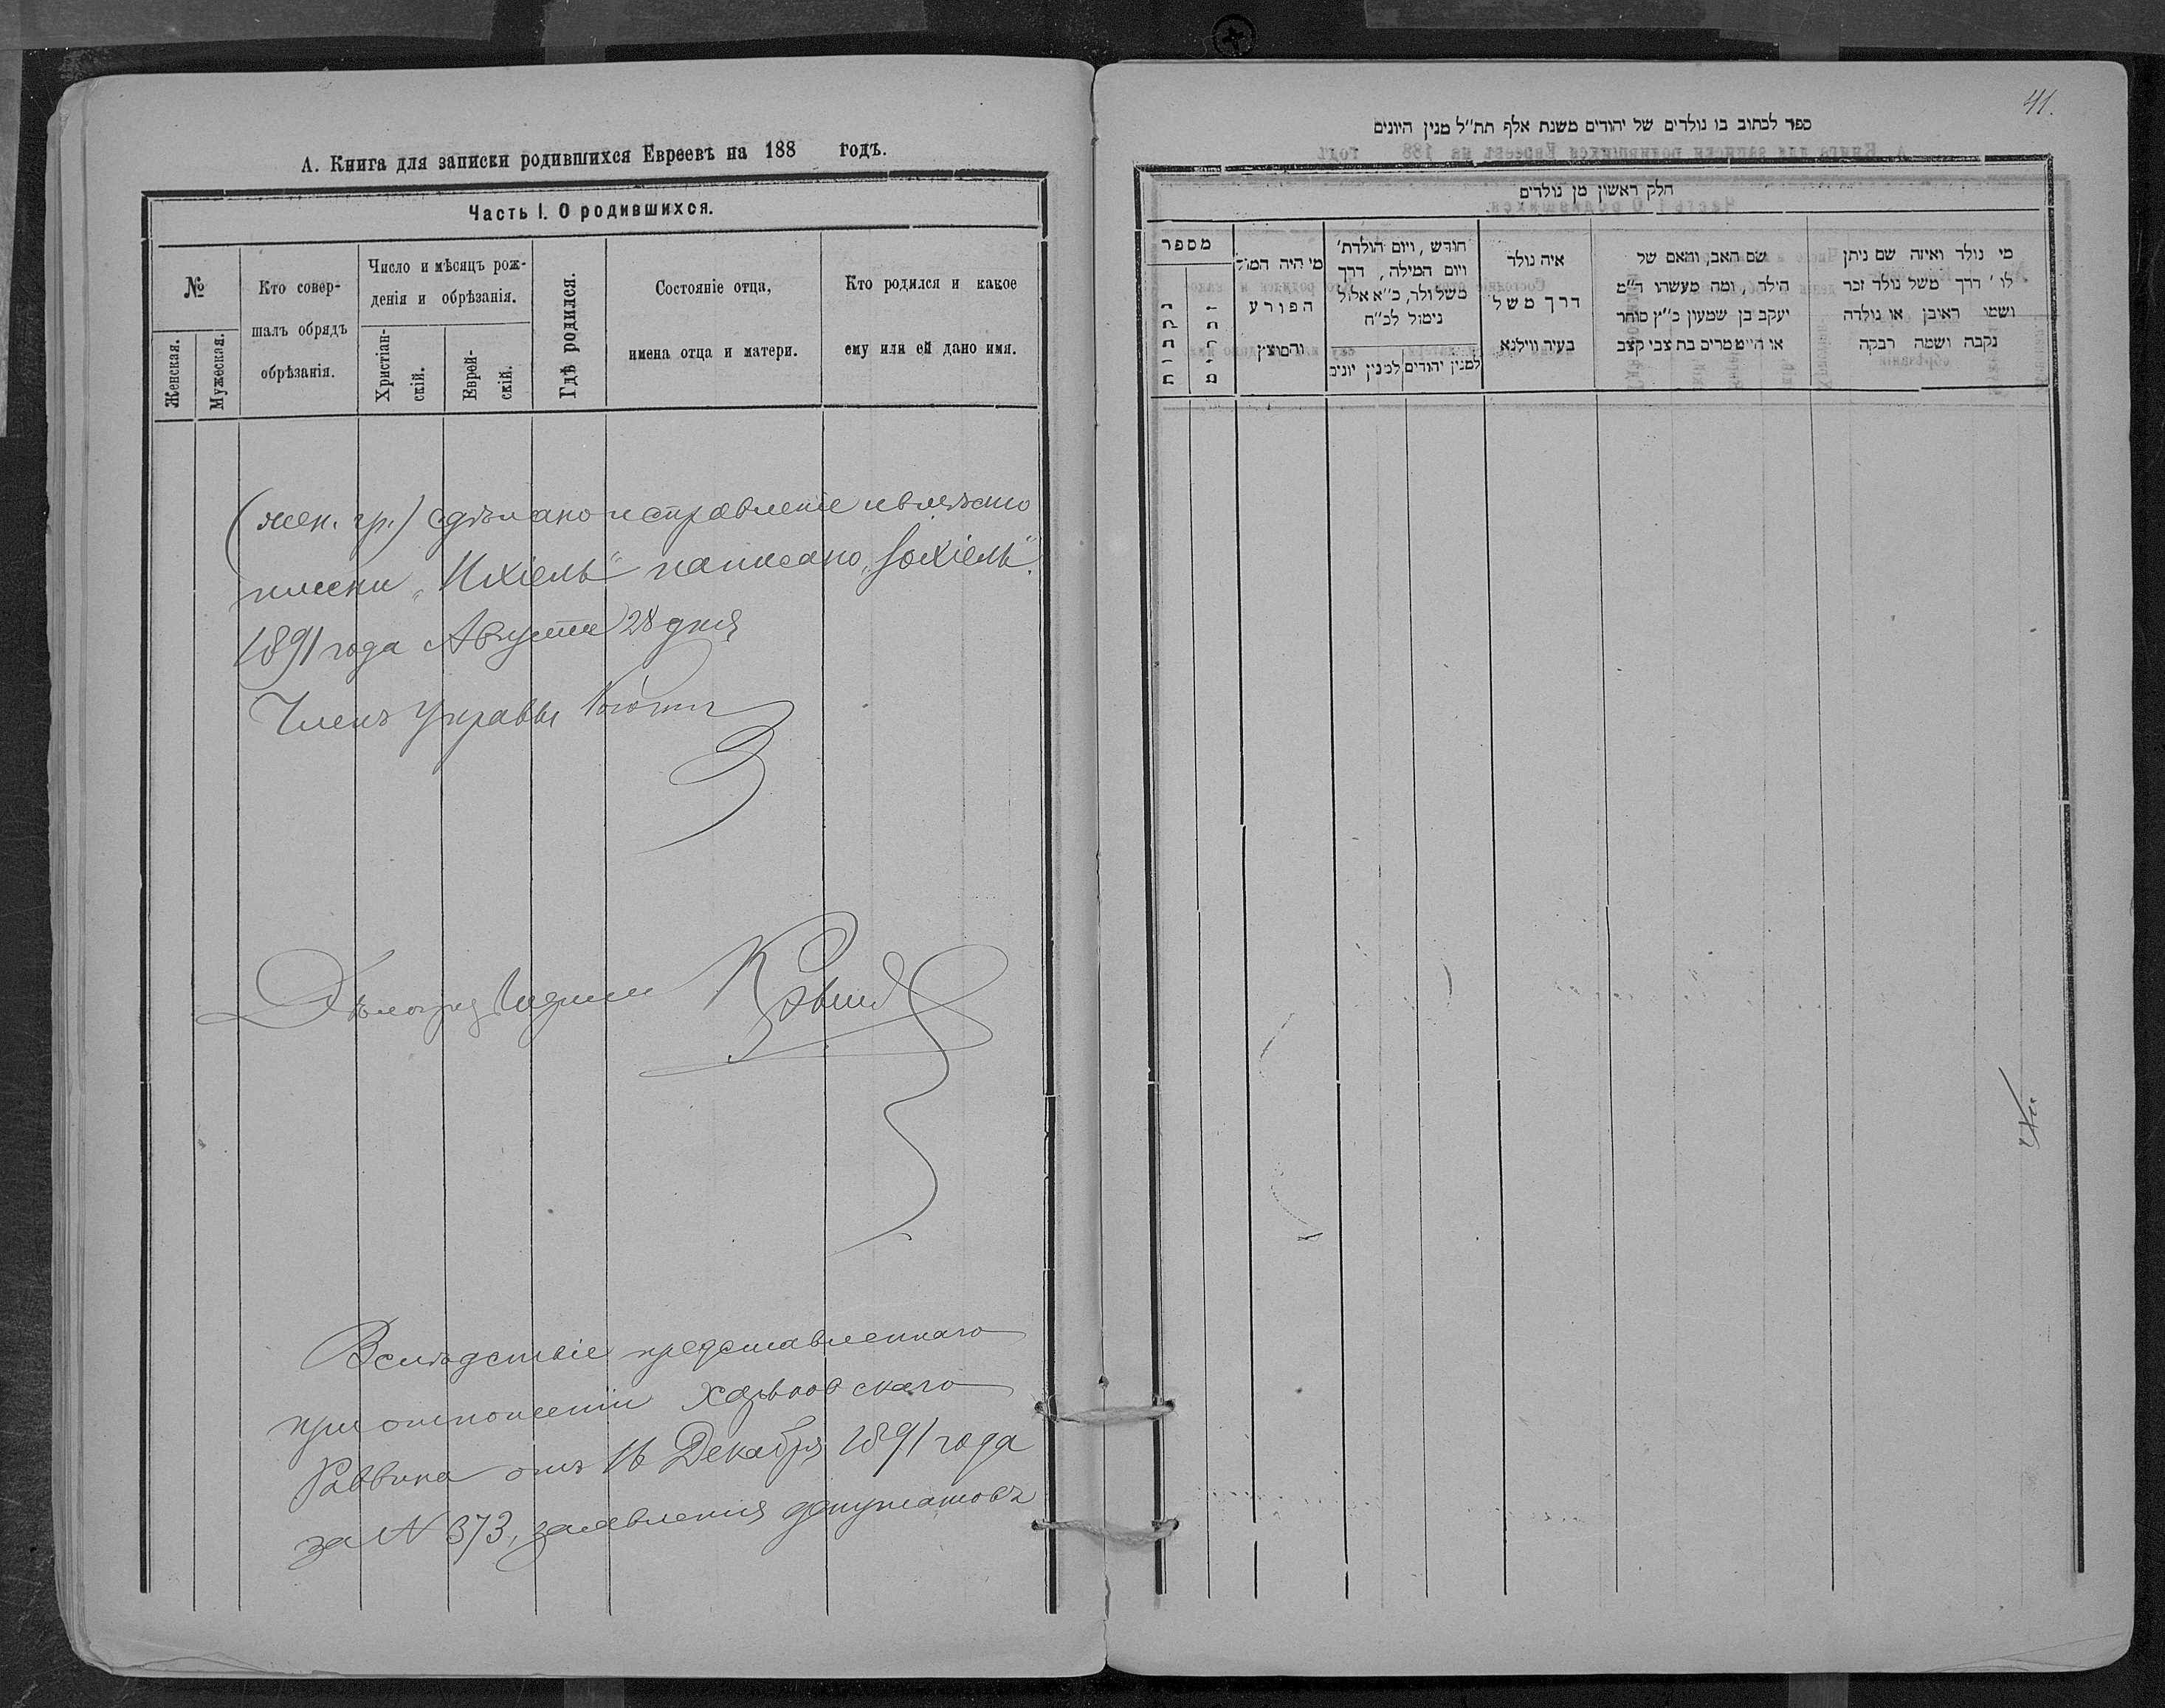 А. Книга для записки родившихся Евреевъ на 188 годъ.
Часть I. О родившихся.
№
Женская.
Мужеская.
Кто совер-
шалъ обрядъ
обрѣзанія.
Число и мѣсяцъ рож-
денія и обрѣзанія.
Христіан-
скій.
Еврей-
скій.
Гдѣ родился.
Состояніе отца,
имена отца и матери.
Кто родился и какое
ему или ей дано имя.
(жен. гр.) сдѣлано исправленіе и вмѣсто
имени „Ихіель" написано „Іохіель".
1891 года Августа 28 дня
Членъ Управы
Дѣлопроизводитель
Вслѣдствіе представленнаго
при отношеніи Харьковскаго
Раввина отъ 16 Декабря 1891 года
за № 373, заявленія депутатовъ
41.
ספר לכתוב בו נולדים של יהודים משנת אלף תת״ל מנין היונים
חלק ראשון מן נולדים
מספר
נקבות
זכרים
מי היה המל
הפורע
והמוצץ
חודש, ויום הולדת'
ויום המילה, דרך
משל ולד, כ״א אלול
נימול לכ״ח
למנין יהודים
למנין יונים
איה נולד
דרך משל
בעיר ווילנא
שם האב, והאם של
הילד, ומה מעשהו ד״מ
יעקב בן שמעון כ״ץ סוחר
או היימטרים בת צבי קצב
מי נולד ואיזה שם ניתן
לו' דרך משל נולד זכר
ושמו ראיבן או נולדה
נקבה ושמה רבקה